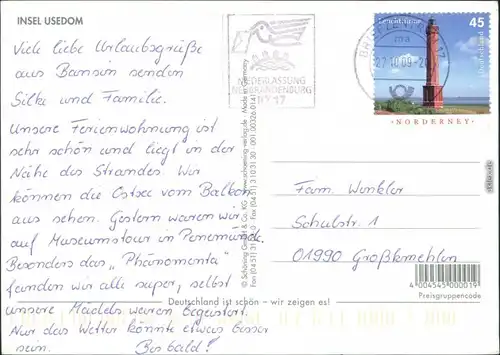 INSEL USEDOM
Viele liebe Urlaubsgrüße
aus Bansin senden
Silke und Familie.
Unsere Ferienwohnung ist
sehr schön und liegt in der
Nähe des Strandes. Wir
können die Ostsee vom Balkon
aus sehen. Gestern waren wir
auf Museumstour in Penemünde.
Besonders das „Phänomenta"
fanden wir alle super, selbst
unsere Mädels waren begeistert.
Nur das Wetter könnte etwas besser
sein. Bis bald!
NIEDERLASSUNG
NEUBRANDENBURG
NY 17
BRIEFZENTRUM 17
ma
27.10.09-20
Leuchttürme
45
Deutschland
NORDERNEY
© Schöning GmbH & Co. KG · www.schoening-verlag.de · Made in Germany
Fam. Winkler
Schulstr. 1
01990 Großkmehlen
4 004545 000019
Preisgruppencode
Deutschland ist schön – wir zeigen es!